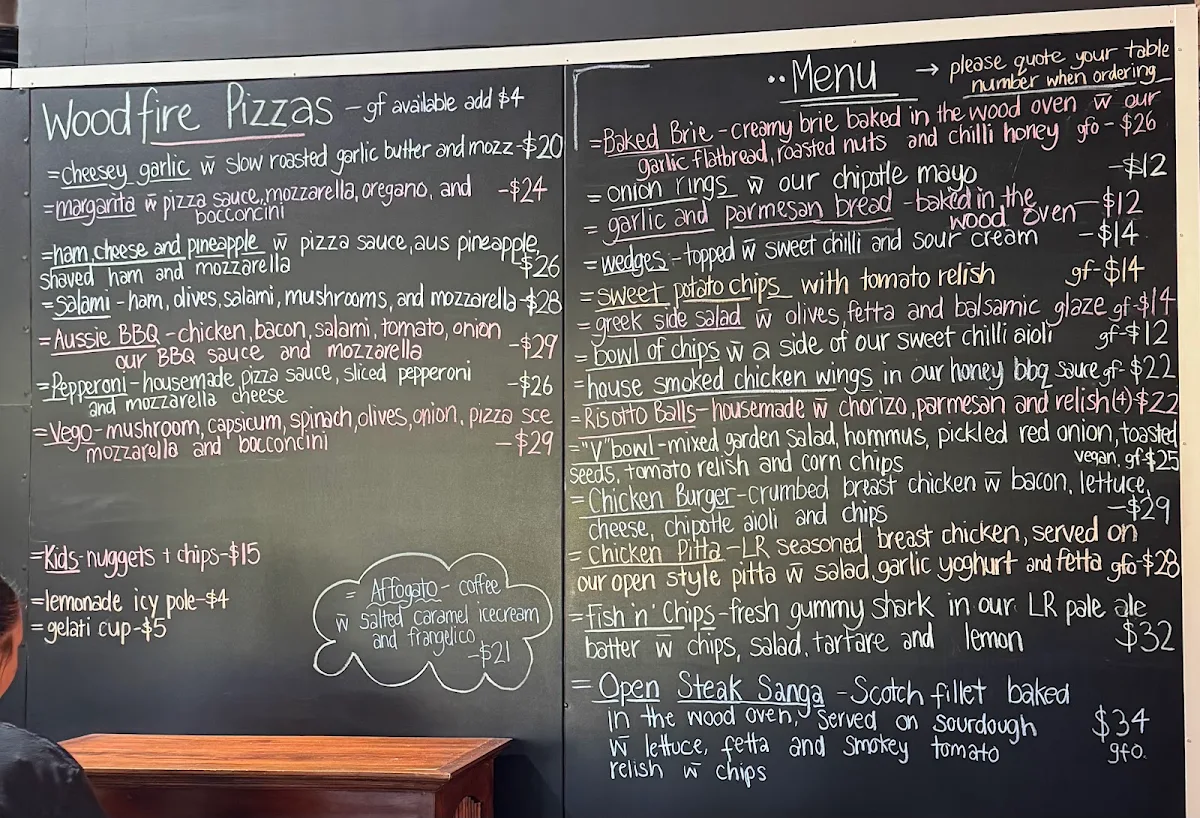 Woodfire Pizzas - gf available add $4
=cheesey garlic w̄ slow roasted garlic butter and mozz-$20
=margarita w̄ pizza sauce, mozzarella, oregano, and -$24
bocconcini
=ham, cheese and pineapple w̄ pizza sauce, aus pineapple,
shaved ham and mozzarella $26
=Salami - ham, olives, salami, mushrooms, and mozzarella-$28
=Aussie BBQ - chicken, bacon, salami, tomato, onion -$29
our BBQ sauce and mozzarella
=Pepperoni - housemade pizza sauce, sliced pepperoni -$26
and mozzarella cheese
=Vego - mushroom, capsicum, spinach, olives, onion, pizza sce
mozzarella and bocconcini -$29
=Kids-nuggets + chips-$15
=lemonade icy pole-$4
=gelati cup-$5
= Affogato - coffee
w̄ salted caramel icecream
and frangelico
-$21
..Menu → please quote your table
number when ordering
=Baked Brie - creamy brie baked in the wood oven w̄ our
garlic flatbread, roasted nuts and chilli honey gfo - $26
=onion rings w̄ our chipotle mayo -$12
=garlic and parmesan bread - baked in the -$12
wood oven
=wedges - topped w̄ sweet chilli and sour cream -$14
=sweet potato chips with tomato relish gf-$14
=greek side salad w̄ olives, fetta and balsamic glaze gf-$14
=bowl of chips w̄ a side of our sweet chilli aioli gf-$12
=house smoked chicken wings in our honey bbq sauce gf-$22
=Risotto Balls - housemade w̄ chorizo, parmesan and relish (4) $22
="V" bowl - mixed garden salad, hommus, pickled red onion, toasted
seeds, tomato relish and corn chips vegan, gf-$25
=Chicken Burger - crumbed breast chicken w̄ bacon, lettuce,
cheese, chipotle aioli and chips -$29
=Chicken Pitta - LR seasoned breast chicken, served on
our open style pitta w̄ salad, garlic yoghurt and fetta gfo-$28
=Fish n' Chips - fresh gummy shark in our LR pale ale
batter w̄ chips, salad, tartare and lemon $32
=Open Steak Sanga - Scotch fillet baked
in the wood oven, served on sourdough $34
w̄ lettuce, fetta and smokey tomato gfo.
relish w̄ chips